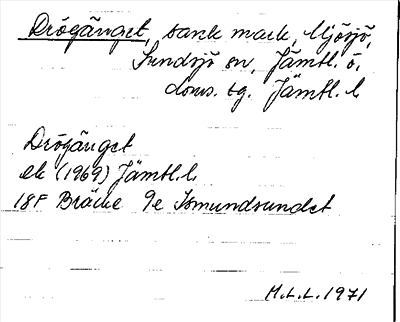 Drögänget, sank mark, Mjösjö,
Sundsjö sn, Jämtl. ö.
doms. tg. Jämtl. l.
Drögänget
ek (1969) Jämtl. l.
18F Bräcke 9e Ismundsundet
M.L.L. 1971